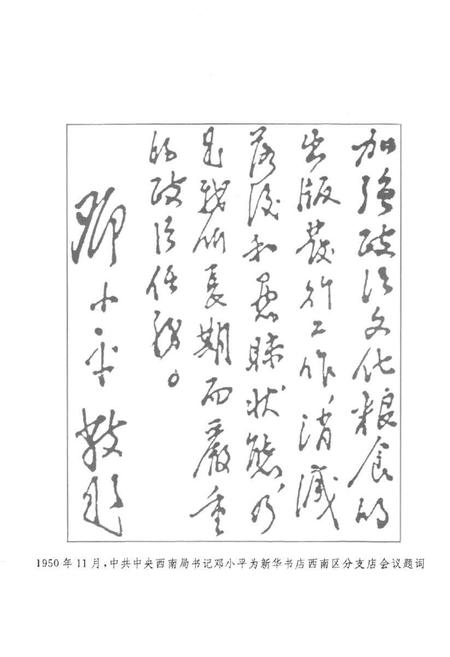 加強政治文化粮食的
出版發行工作，消滅
落後和愚昧狀態，乃
是我們長期而嚴重
的政治任務。
鄧小平敬題
1950年11月，中共中央西南局书记邓小平为新华书店西南区分支店会议题词